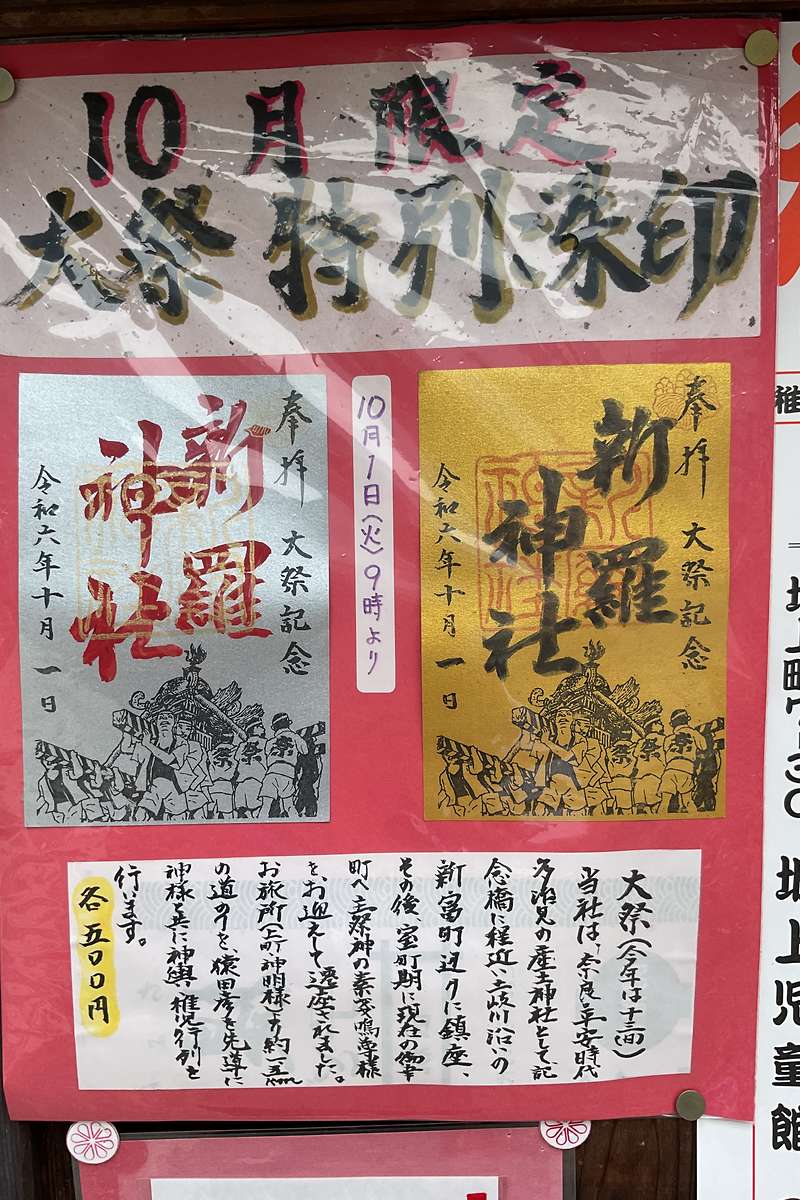 10月限定
大祭 特別深印
奉拝 大祭記念
新羅
神社
令和六年十月一日
10月1日(火)9時より
奉拝 大祭記念
新羅
神社
令和六年十月一日
祭
祭
祭
祭
祭
祭
大祭(今年は十三(日))
当社は、奈良・平安時代
多治見の産土神社として、記
念橋に程近い土岐川沿いの
新富町辺りに鎮座、
その後室町期に現在の御幸
町へ主祭神の素戔嗚尊様
をお迎えして遷座されました。
お旅所(上町神明様)より約一・五km
の道のりを、猿田彦を先導に
神様と共に神輿・稚児行列を
行います。
各五〇〇円
稚
上児童館